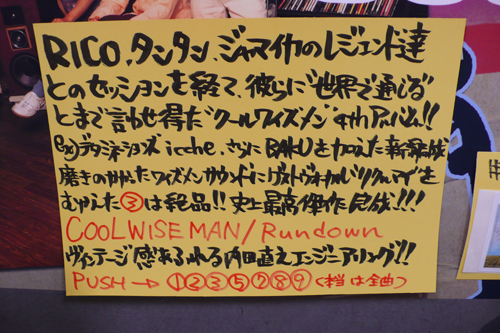 RICO、タンタン、ジャマイカのレジェンド達
とのセッションを経て、彼らに"世界で通じる"
とまで言わせ得た"クールワイズメン"4thアルバム!!
icchie、さらにBAKUを加えた新編成
磨きのかかったワイズメンサウンドにゲストヴォーカル"リクルマイ"を
むかえた③は絶品!! 史上最高傑作完成!!!
COOL WISE MAN / Rundown
ヴィンテージ感あふれる内田直之エンジニアリング!!
PUSH → ①②③⑤⑦⑧⑨ (本当は全曲)